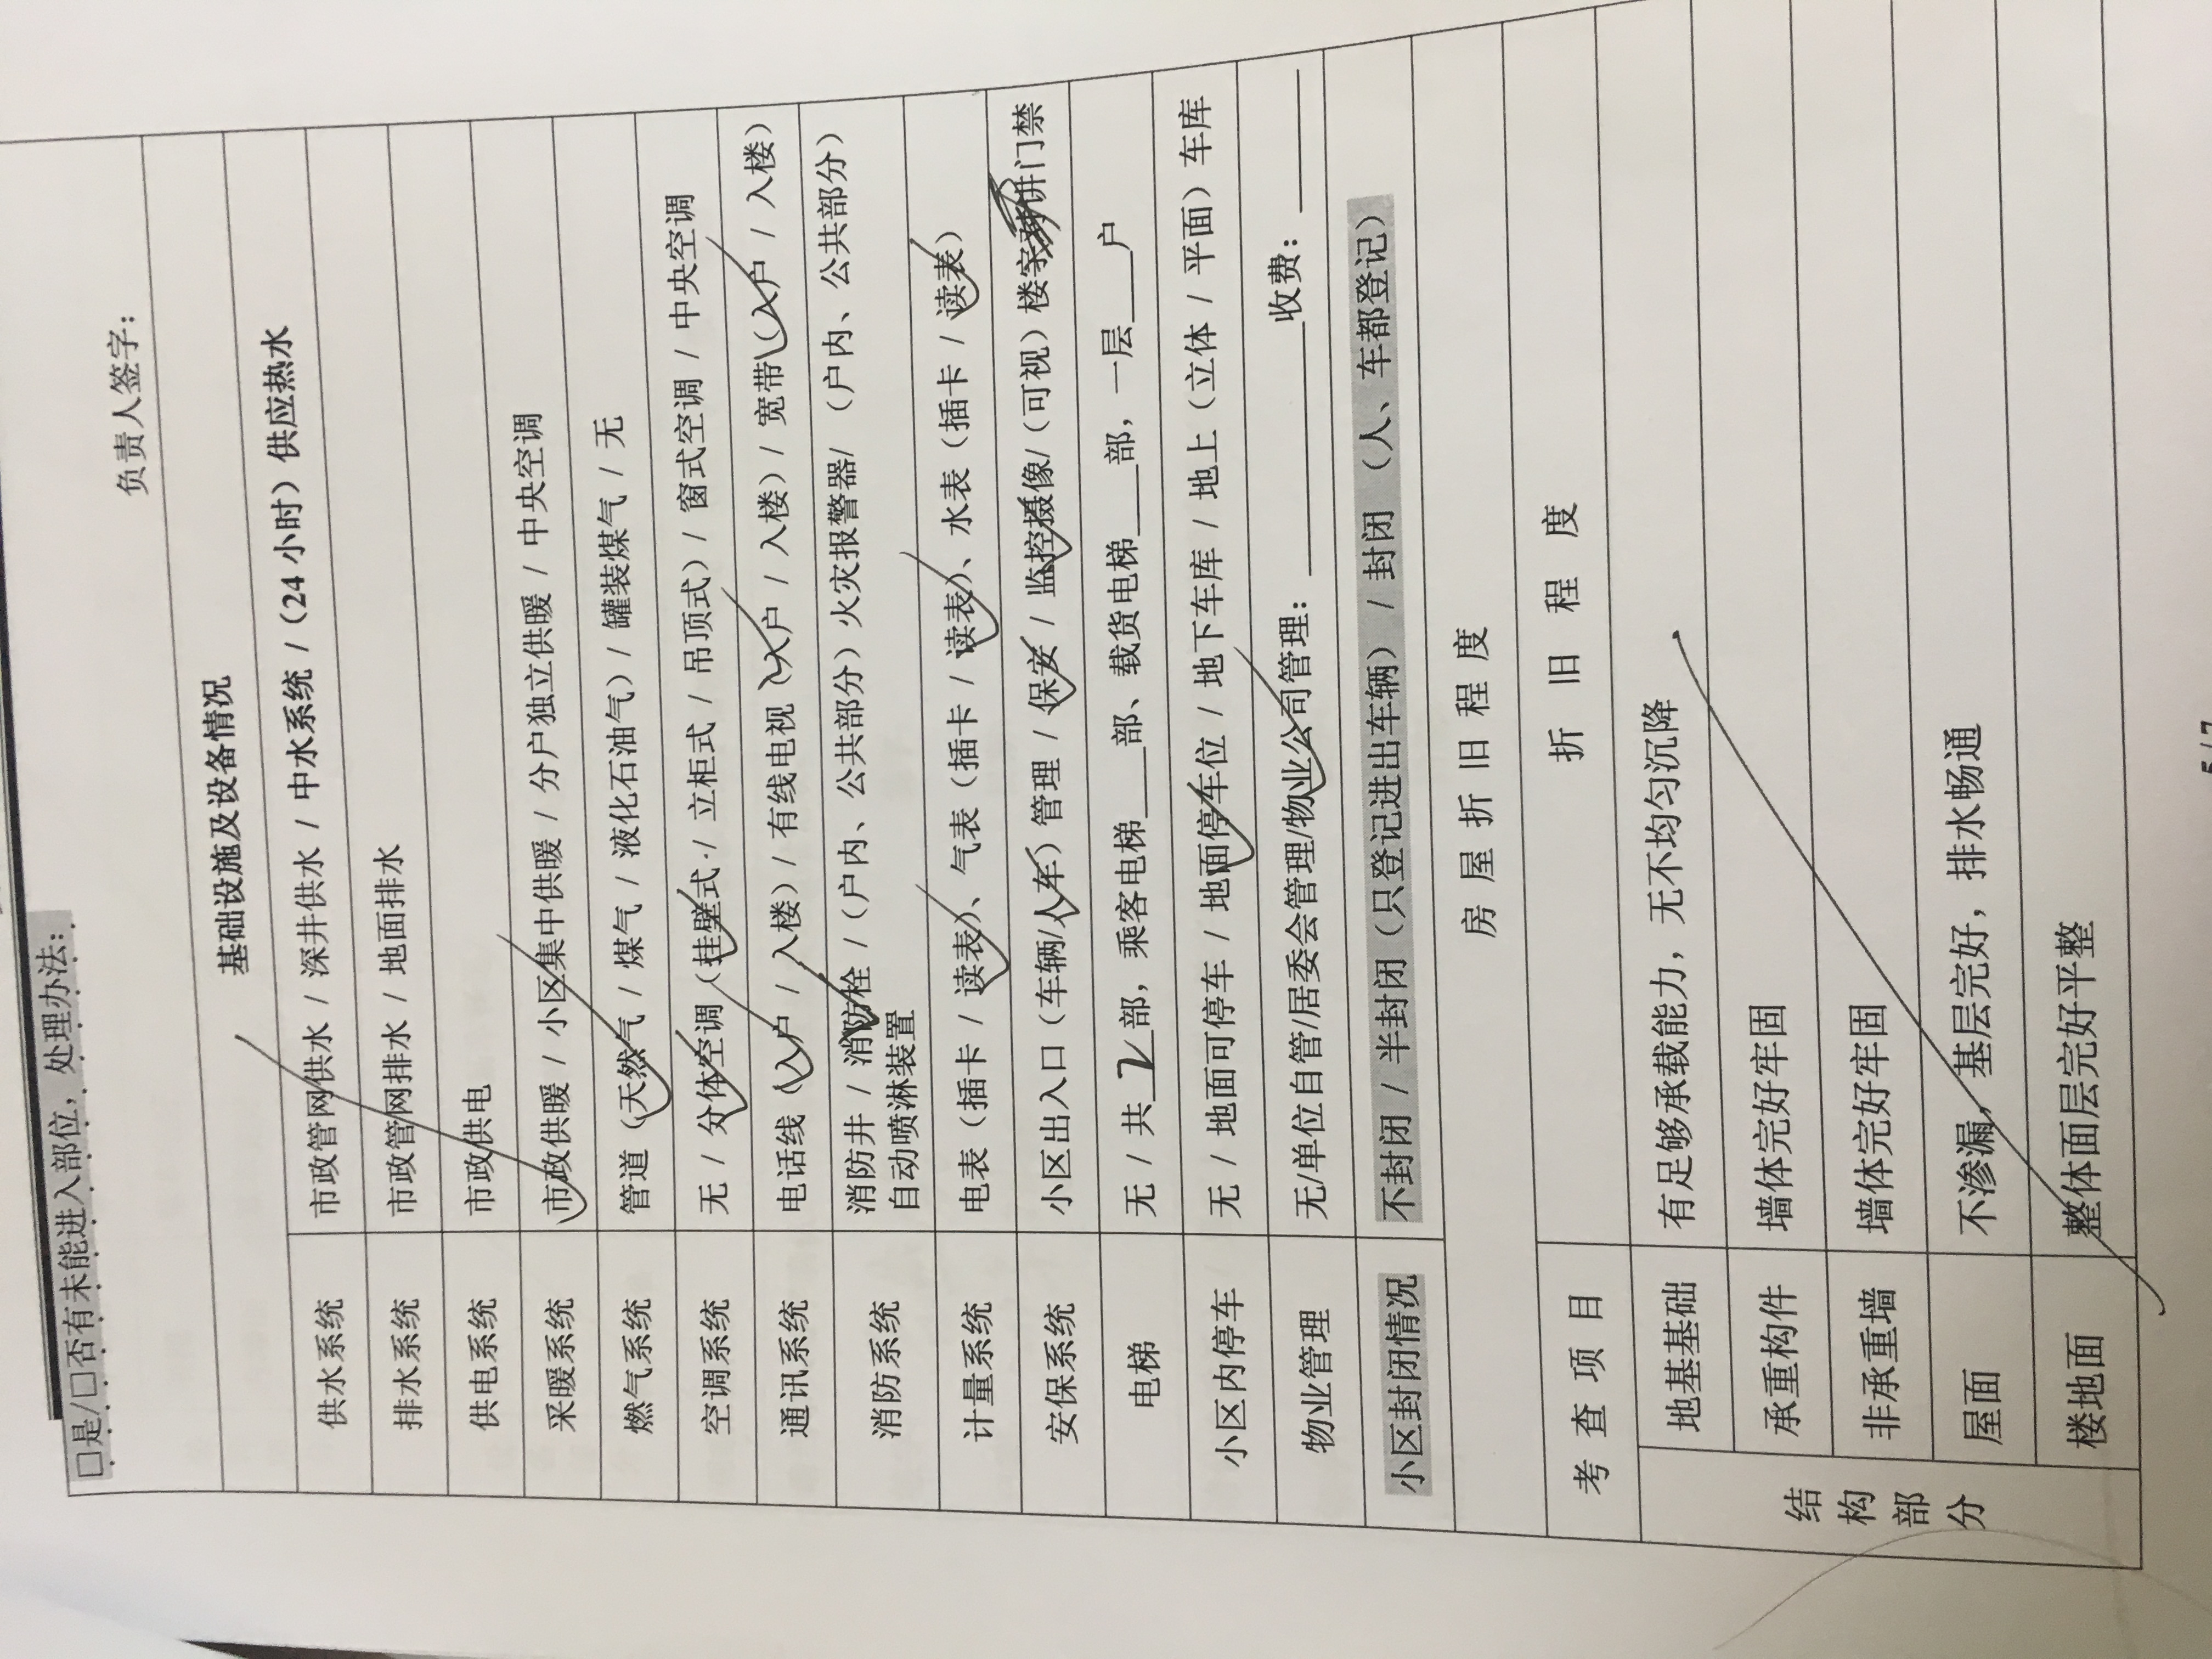 □是/□否有未能进入部位，处理办法：
负责人签字：
基础设施及设备情况
供水系统 市政管网供水 / 深井供水 / 中水系统 / (24 小时) 供应热水
排水系统 市政管网排水 / 地面排水
供电系统 市政供电
采暖系统 市政供暖 / 小区集中供暖 / 分户独立供暖 / 中央空调
燃气系统 管道（天然气 / 煤气 / 液化石油气）/ 罐装煤气 / 无
空调系统 无 / 分体空调（挂壁式·/ 立柜式 / 吊顶式）/ 窗式空调 / 中央空调
通讯系统 电话线（入户 / 入楼）/ 有线电视（入户 / 入楼）/ 宽带（入户 / 入楼）
消防系统 消防井 / 消防栓 /（户内、公共部分）火灾报警器/（户内、公共部分）
自动喷淋装置
计量系统 电表（插卡 / 读表）、气表（插卡 / 读表）、水表（插卡 / 读表）
安保系统 小区出入口（车辆/人车）管理 / 保安 / 监控摄像/（可视）楼宇对讲门禁
电梯 无 / 共 2 部，乘客电梯___部、载货电梯___部，一层___户
小区内停车 无 / 地面可停车 / 地面停车位 / 地下车库 / 地上（立体 / 平面）车库
物业管理 无/单位自管/居委会管理/物业公司管理：________收费：____
小区封闭情况 不封闭 / 半封闭（只登记进出车辆）/ 封闭（人、车都登记）
房屋折旧程度
考查项目 折旧程度
结构部分
地基基础 有足够承载能力，无不均匀沉降
承重构件 墙体完好牢固
非承重墙 墙体完好牢固
屋面 不渗漏，基层完好，排水畅通
楼地面 整体面层完好平整